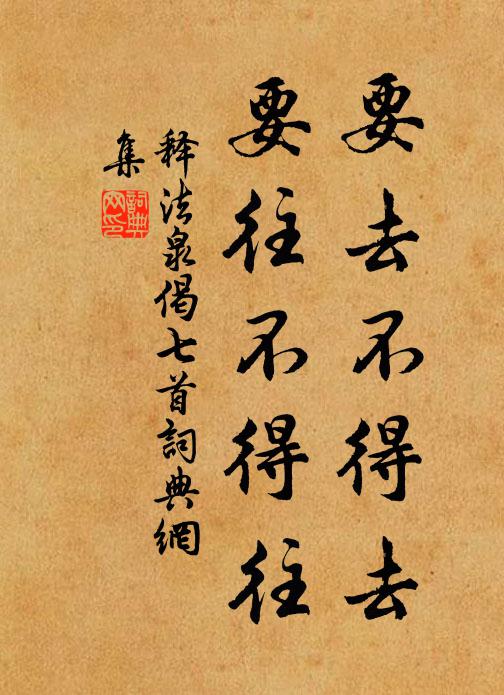 要去不得去
要往不得往
释法泉偈七首詞典網
集
詞典
网印